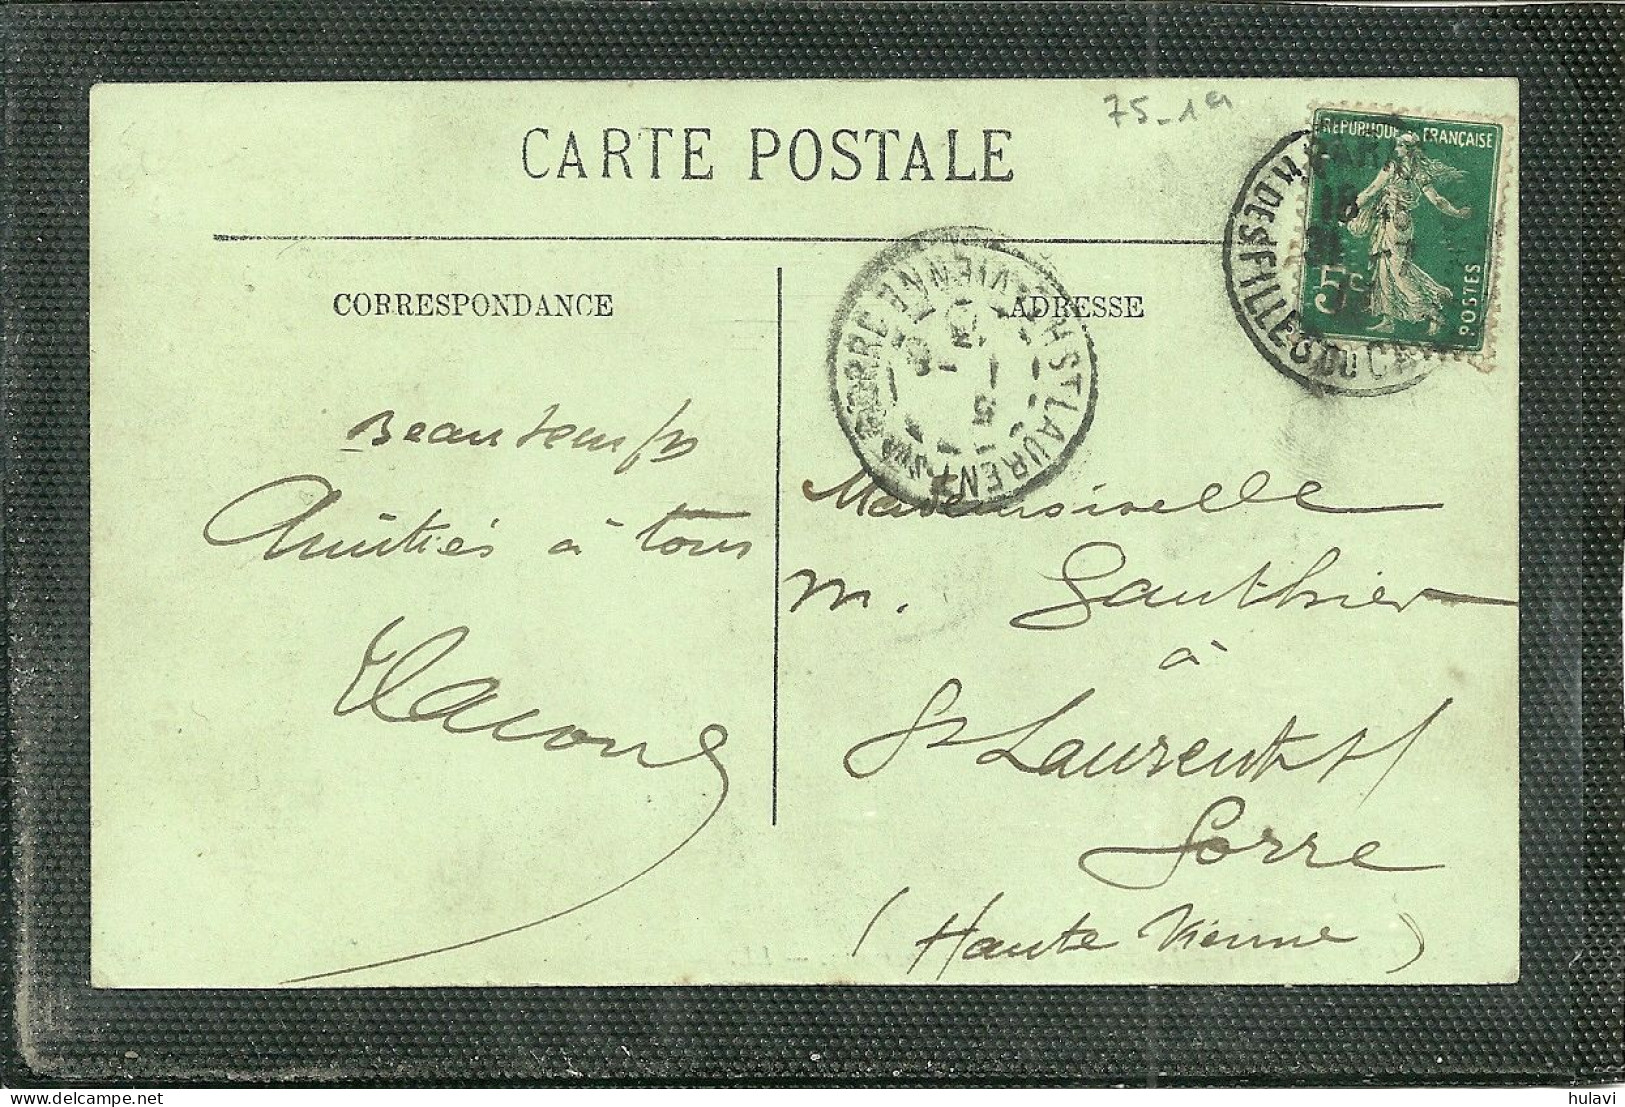 75-1a
CARTE POSTALE
RÉPUBLIQUE FRANÇAISE
5c
POSTES
DES FILLES DU CAL
CORRESPONDANCE
ADRESSE
ST LAURENT
VIENNE
Beau temps
Amitiés à tous
Mademoiselle
M. Gauthier
à
St Laurent s/
Gorre
(Haute Vienne)
hulavi